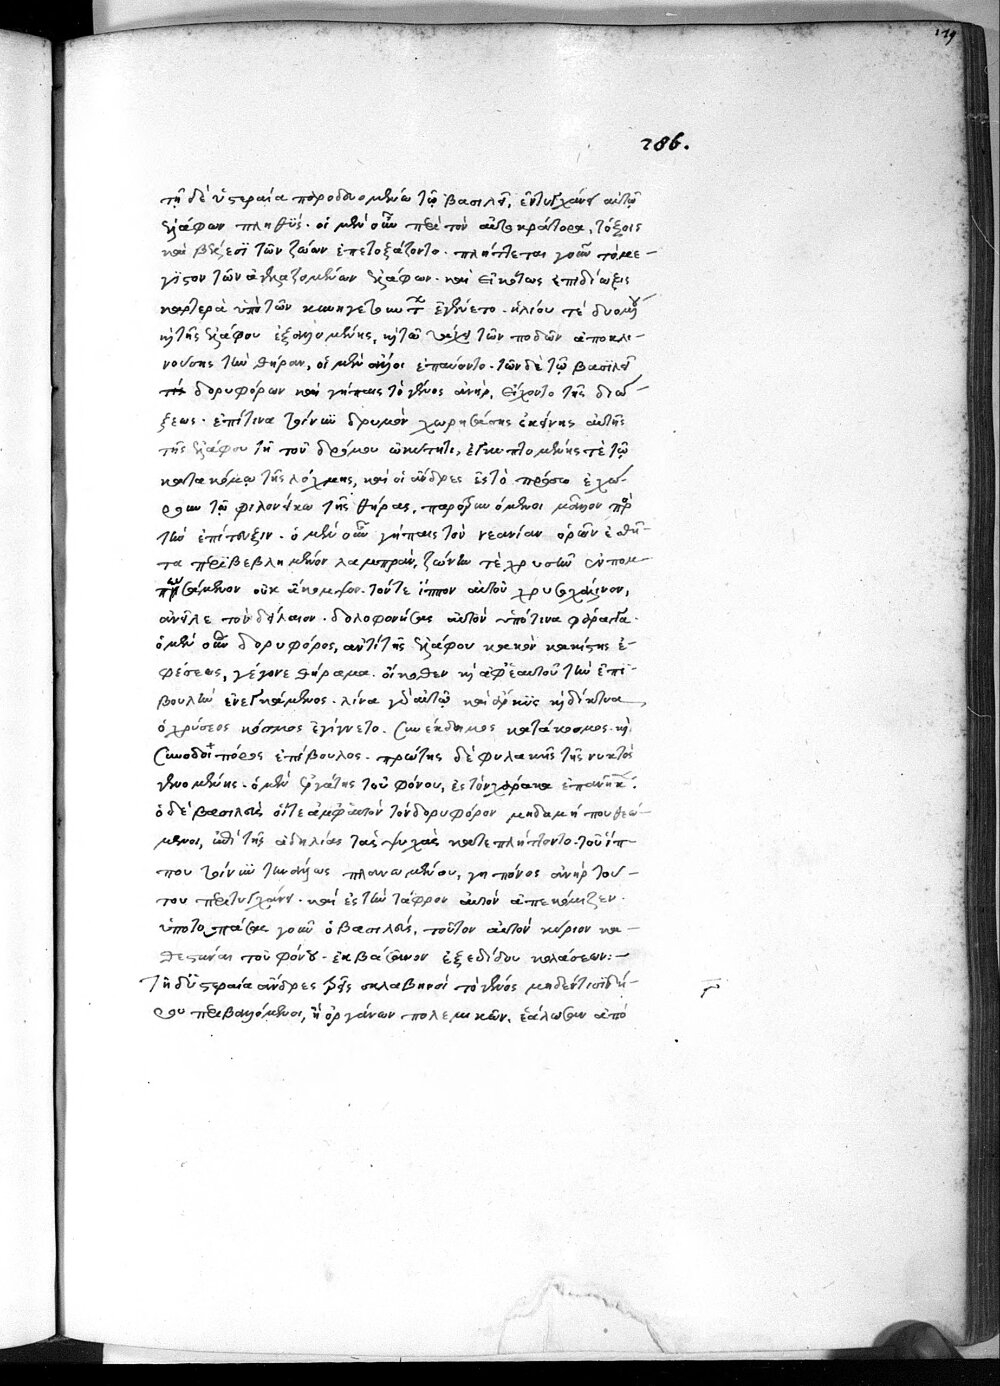 129
286.
τῇ δὲ ὑστεραία παροδευομένω τῷ βασιλεῖ, ἐντυγχάνει αὐτῷ
ἐλάφων πληθύς. οἱ μὲν οὖν περὶ τὸν αὐτοκράτορα, τόξοις
καὶ βέλεσι τῶν ζώων ἐπετοξάζοντο. πλήττεται γοῦν τὸ μέ-
γιστον τῶν ἀγελαζομένων ἐλάφων. καὶ εἰκότως ἐπιδίωξις
καρτερὰ ὑπὸ τῶν κυνηγετούντων ἐγένετο. ἡλίου τὲ δυομένου
κ τῆς ἐλάφου ἐξανυομένης, κ τῶ τάχει τῶν ποδῶν ἀποκλι-
νούσης τὴν θήραν, οἱ μὲν ἄλλοι ἐπαύοντο. τῶν δὲ τῷ βασιλεῖ
δορυφόρων καὶ γήπαις τὸ γένος ἀνήρ, εἴχοντο τῆς διώ-
ξεως. ἐπί τινα τοίνυν δρυμὸν χωρησάσης ἐκείνης αὐτῆς
τῆς ἐλάφου τῇ τοῦ δρόμου ὠκύτητι, ἐγκυπτομένης τὲ τῷ
κατακόμω τῆς λόχμης, καὶ οἱ ἄνδρες ἐς τὸ πρόσω ἐχώ-
ρουν τῷ φιλονείκω τῆς θήρας, παροξυνόμενοι μᾶλλον πρὸς
τὴν ἐπίτευξιν. ὁ μὲν οὖν γήπαις τὸν νεανίαν ὁρῶν ἐσθῆ-
τα περιβεβλημένον λαμπράν, ζώνην τὲ χρυσῆν
οὐκ ἄκομψον. τόν τε ἵππον αὐτοῦ χρυσοχάλινον,
ἀνεῖλε τὸν δείλαιον. δολοφονήσας αὐτὸν ὑπό τινα φάραγγα.
ὁ μὲν οὖν δορυφόρος, ἀντὶ τῆς ἐλάφου κακὸν κακίστης ἐ-
φέσεως, γέγονε θήραμα. οἴκοθεν κ ἀφ' ἑαυτοῦ τὴν ἐπι-
βουλὴν ἐνεγκάμενος. λίνα γὰρ αὐτῷ καὶ ἄρκυς κ δίκτυα
ὁ χρύσεος κόσμος ἐγίγνετο. συνέκδημος κατάκοσμος. κ
συνοδοιπόρος ἐπίβουλος. πρώτης δὲ φυλακῆς τῆς νυκτὸς
γενομένης. ὁ μὲν ἐργάτης τοῦ φόνου, ἐς τὸν χάρακα ἐπανῆκε.
ὁ δὲ βασιλεὺς οἵ τε ἀμφ' αὐτὸν τὸν δορυφόρον μηδαμῆ που θεώ-
μενοι, ὑπὸ τῆς ἀδηλίας τὰς ψυχὰς κατεπλήττοντο. τοῦ ἵπ-
που τοίνυν τηνάλλως πλανωμένου, γηπόνος ἀνὴρ τού-
του περιτυγχάνει. καὶ ἐς τὴν τάφρον αὐτὸν ἀπεκόμιζεν.
ὑποτοπάσας γοῦν ὁ βασιλεύς, τοῦτον αὐτὸν κύριον κα-
θεστάναι τοῦ φόνου. ἐκβασάνων ἐξεδίδου κολάσεων:-
Τῇ δ' ὑστεραία ἄνδρες τρεῖς σκλαβηνοὶ τὸ γένος μηδέν τι σιδή-
ρου περιβαλλόμενοι, ἢ ὀργάνων πολεμικῶν. ἑάλωσαν ἀπὸ